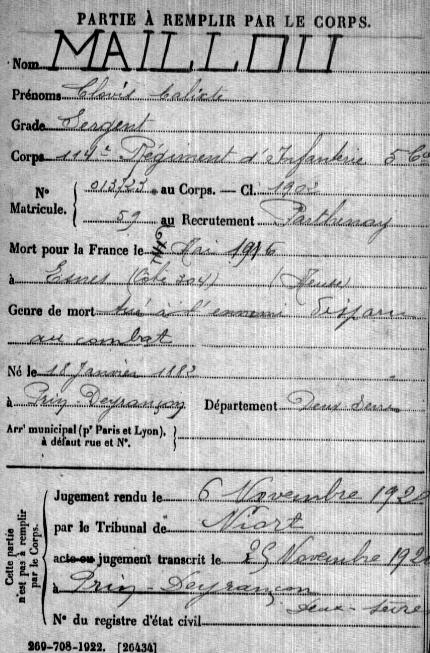 PARTIE À REMPLIR PAR LE CORPS.
Nom MAILLOU
Prénoms Clovis Calixte
Grade Sergent
Corps 114e Régiment d'Infanterie 5 Cie
N° Matricule. 013727 au Corps. — Cl. 1902
59 au Recrutement Parthenay
Mort pour la France le Mai 1916
à Esnes (Côte 304) (Meuse)
Genre de mort tué à l'ennemi Disparu
au combat
Né le 18 Janvier 1882
à Prin-Deyrançon Département Deux Sèvres
Arrt municipal (pr Paris et Lyon), à défaut rue et N°.
Cette partie n'est pas à remplir par le Corps.
Jugement rendu le 6 Novembre 1920
par le Tribunal de Niort
acte ou jugement transcrit le 25 Novembre 1920
à Prin-Deyrançon
Deux-Sèvres
N° du registre d'état civil
269-708-1922. [26434]